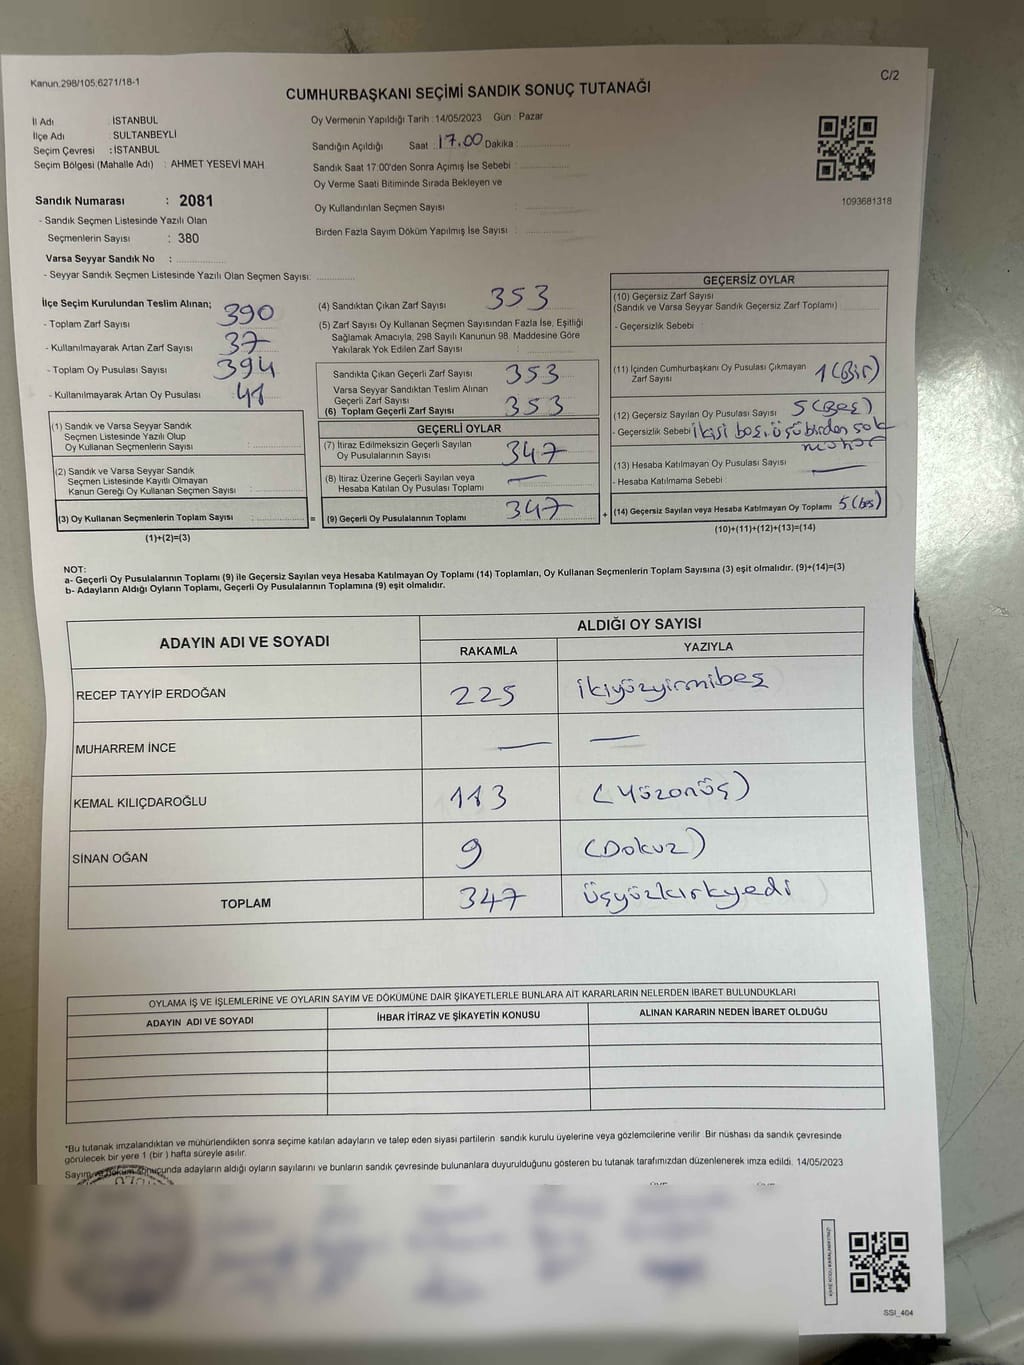 Kanun.298/105.6271/18-1
C/2
CUMHURBAŞKANI SEÇİMİ SANDIK SONUÇ TUTANAĞI
İl Adı : İSTANBUL
İlçe Adı : SULTANBEYLİ
Seçim Çevresi : İSTANBUL
Seçim Bölgesi (Mahalle Adı) : AHMET YESEVİ MAH.
Oy Vermenin Yapıldığı Tarih : 14/05/2023 Gün : Pazar
Sandığın Açıldığı Saat : 17.00 Dakika :
Sandık Saat 17:00'den Sonra Açımış İse Sebebi :
Oy Verme Saati Bitiminde Sırada Bekleyen ve
Oy Kullandırılan Seçmen Sayısı :
Birden Fazla Sayım Döküm Yapılmış İse Sayısı :
1093681318
Sandık Numarası : 2081
- Sandık Seçmen Listesinde Yazılı Olan
Seçmenlerin Sayısı : 380
Varsa Seyyar Sandık No :
- Seyyar Sandık Seçmen Listesinde Yazılı Olan Seçmen Sayısı:
İlçe Seçim Kurulundan Teslim Alınan;
- Toplam Zarf Sayısı 390
- Kullanılmayarak Artan Zarf Sayısı 37
- Toplam Oy Pusulası Sayısı 394
- Kullanılmayarak Artan Oy Pusulası 41
(1) Sandık ve Varsa Seyyar Sandık
Seçmen Listesinde Yazılı Olup
Oy Kullanan Seçmenlerin Sayısı :
(2) Sandık ve Varsa Seyyar Sandık
Seçmen Listesinde Kayıtlı Olmayan
Kanun Gereği Oy Kullanan Seçmen Sayısı :
(3) Oy Kullanan Seçmenlerin Toplam Sayısı :
(1)+(2)=(3)
(4) Sandıktan Çıkan Zarf Sayısı 353
(5) Zarf Sayısı Oy Kullanan Seçmen Sayısından Fazla İse, Eşitliği
Sağlamak Amacıyla, 298 Sayılı Kanunun 98. Maddesine Göre
Yakılarak Yok Edilen Zarf Sayısı :
Sandıkta Çıkan Geçerli Zarf Sayısı 353
Varsa Seyyar Sandıktan Teslim Alınan
Geçerli Zarf Sayısı :
(6) Toplam Geçerli Zarf Sayısı 353
GEÇERLİ OYLAR
(7) İtiraz Edilmeksizin Geçerli Sayılan
Oy Pusulalarının Sayısı 347
(8) İtiraz Üzerine Geçerli Sayılan veya
Hesaba Katılan Oy Pusulası Toplamı —
= (9) Geçerli Oy Pusulalarının Toplamı 347 +
GEÇERSİZ OYLAR
(10) Geçersiz Zarf Sayısı
(Sandık ve Varsa Seyyar Sandık Geçersiz Zarf Toplamı)
- Geçersizlik Sebebi :
(11) İçinden Cumhurbaşkanı Oy Pusulası Çıkmayan
Zarf Sayısı 1 (Bir)
(12) Geçersiz Sayılan Oy Pusulası Sayısı 5 (Beş)
- Geçersizlik Sebebi ikisi boş, üçü birden çok
mühür
(13) Hesaba Katılmayan Oy Pusulası Sayısı —
- Hesaba Katılmama Sebebi
(14) Geçersiz Sayılan veya Hesaba Katılmayan Oy Toplamı 5 (beş)
(10)+(11)+(12)+(13)=(14)
NOT:
a- Geçerli Oy Pusulalarının Toplamı (9) ile Geçersiz Sayılan veya Hesaba Katılmayan Oy Toplamı (14) Toplamları, Oy Kullanan Seçmenlerin Toplam Sayısına (3) eşit olmalıdır. (9)+(14)=(3)
b- Adayların Aldığı Oyların Toplamı, Geçerli Oy Pusulalarının Toplamına (9) eşit olmalıdır.
ADAYIN ADI VE SOYADI
ALDIĞI OY SAYISI
RAKAMLA YAZIYLA
RECEP TAYYİP ERDOĞAN 225 ikiyüzyirmibeş
MUHARREM İNCE — —
KEMAL KILIÇDAROĞLU 113 (Yüzonüç)
SİNAN OĞAN 9 (Dokuz)
TOPLAM 347 üçyüzkırkyedi )
OYLAMA İŞ VE İŞLEMLERİNE VE OYLARIN SAYIM VE DÖKÜMÜNE DAİR ŞİKAYETLERLE BUNLARA AİT KARARLARIN NELERDEN İBARET BULUNDUKLARI
ADAYIN ADI VE SOYADI İHBAR İTİRAZ VE ŞİKAYETİN KONUSU ALINAN KARARIN NEDEN İBARET OLDUĞU
*Bu tutanak imzalandıktan ve mühürlendikten sonra seçime katılan adayların ve talep eden siyasi partilerin sandık kurulu üyelerine veya gözlemcilerine verilir. Bir nüshası da sandık çevresinde
görülecek bir yere 1 (bir) hafta süreyle asılır.
Sayım ve döküm sonuçunda adayların aldığı oyların sayılarını ve bunların sandık çevresinde bulunanlara duyurulduğunu gösteren bu tutanak tarafımızdan düzenlenerek imza edildi. 14/05/2023
SSI_404